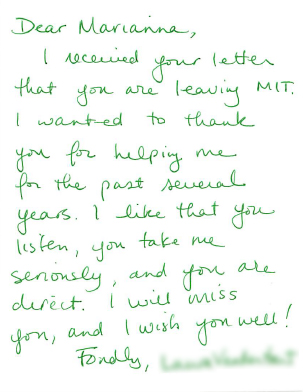 Dear Marianna,
I received your letter
that you are leaving MIT.
I wanted to thank
you for helping me
for the past several
years. I like that you
listen, you take me
seriously, and you are
direct. I will miss
you, and I wish you well!
Fondly,